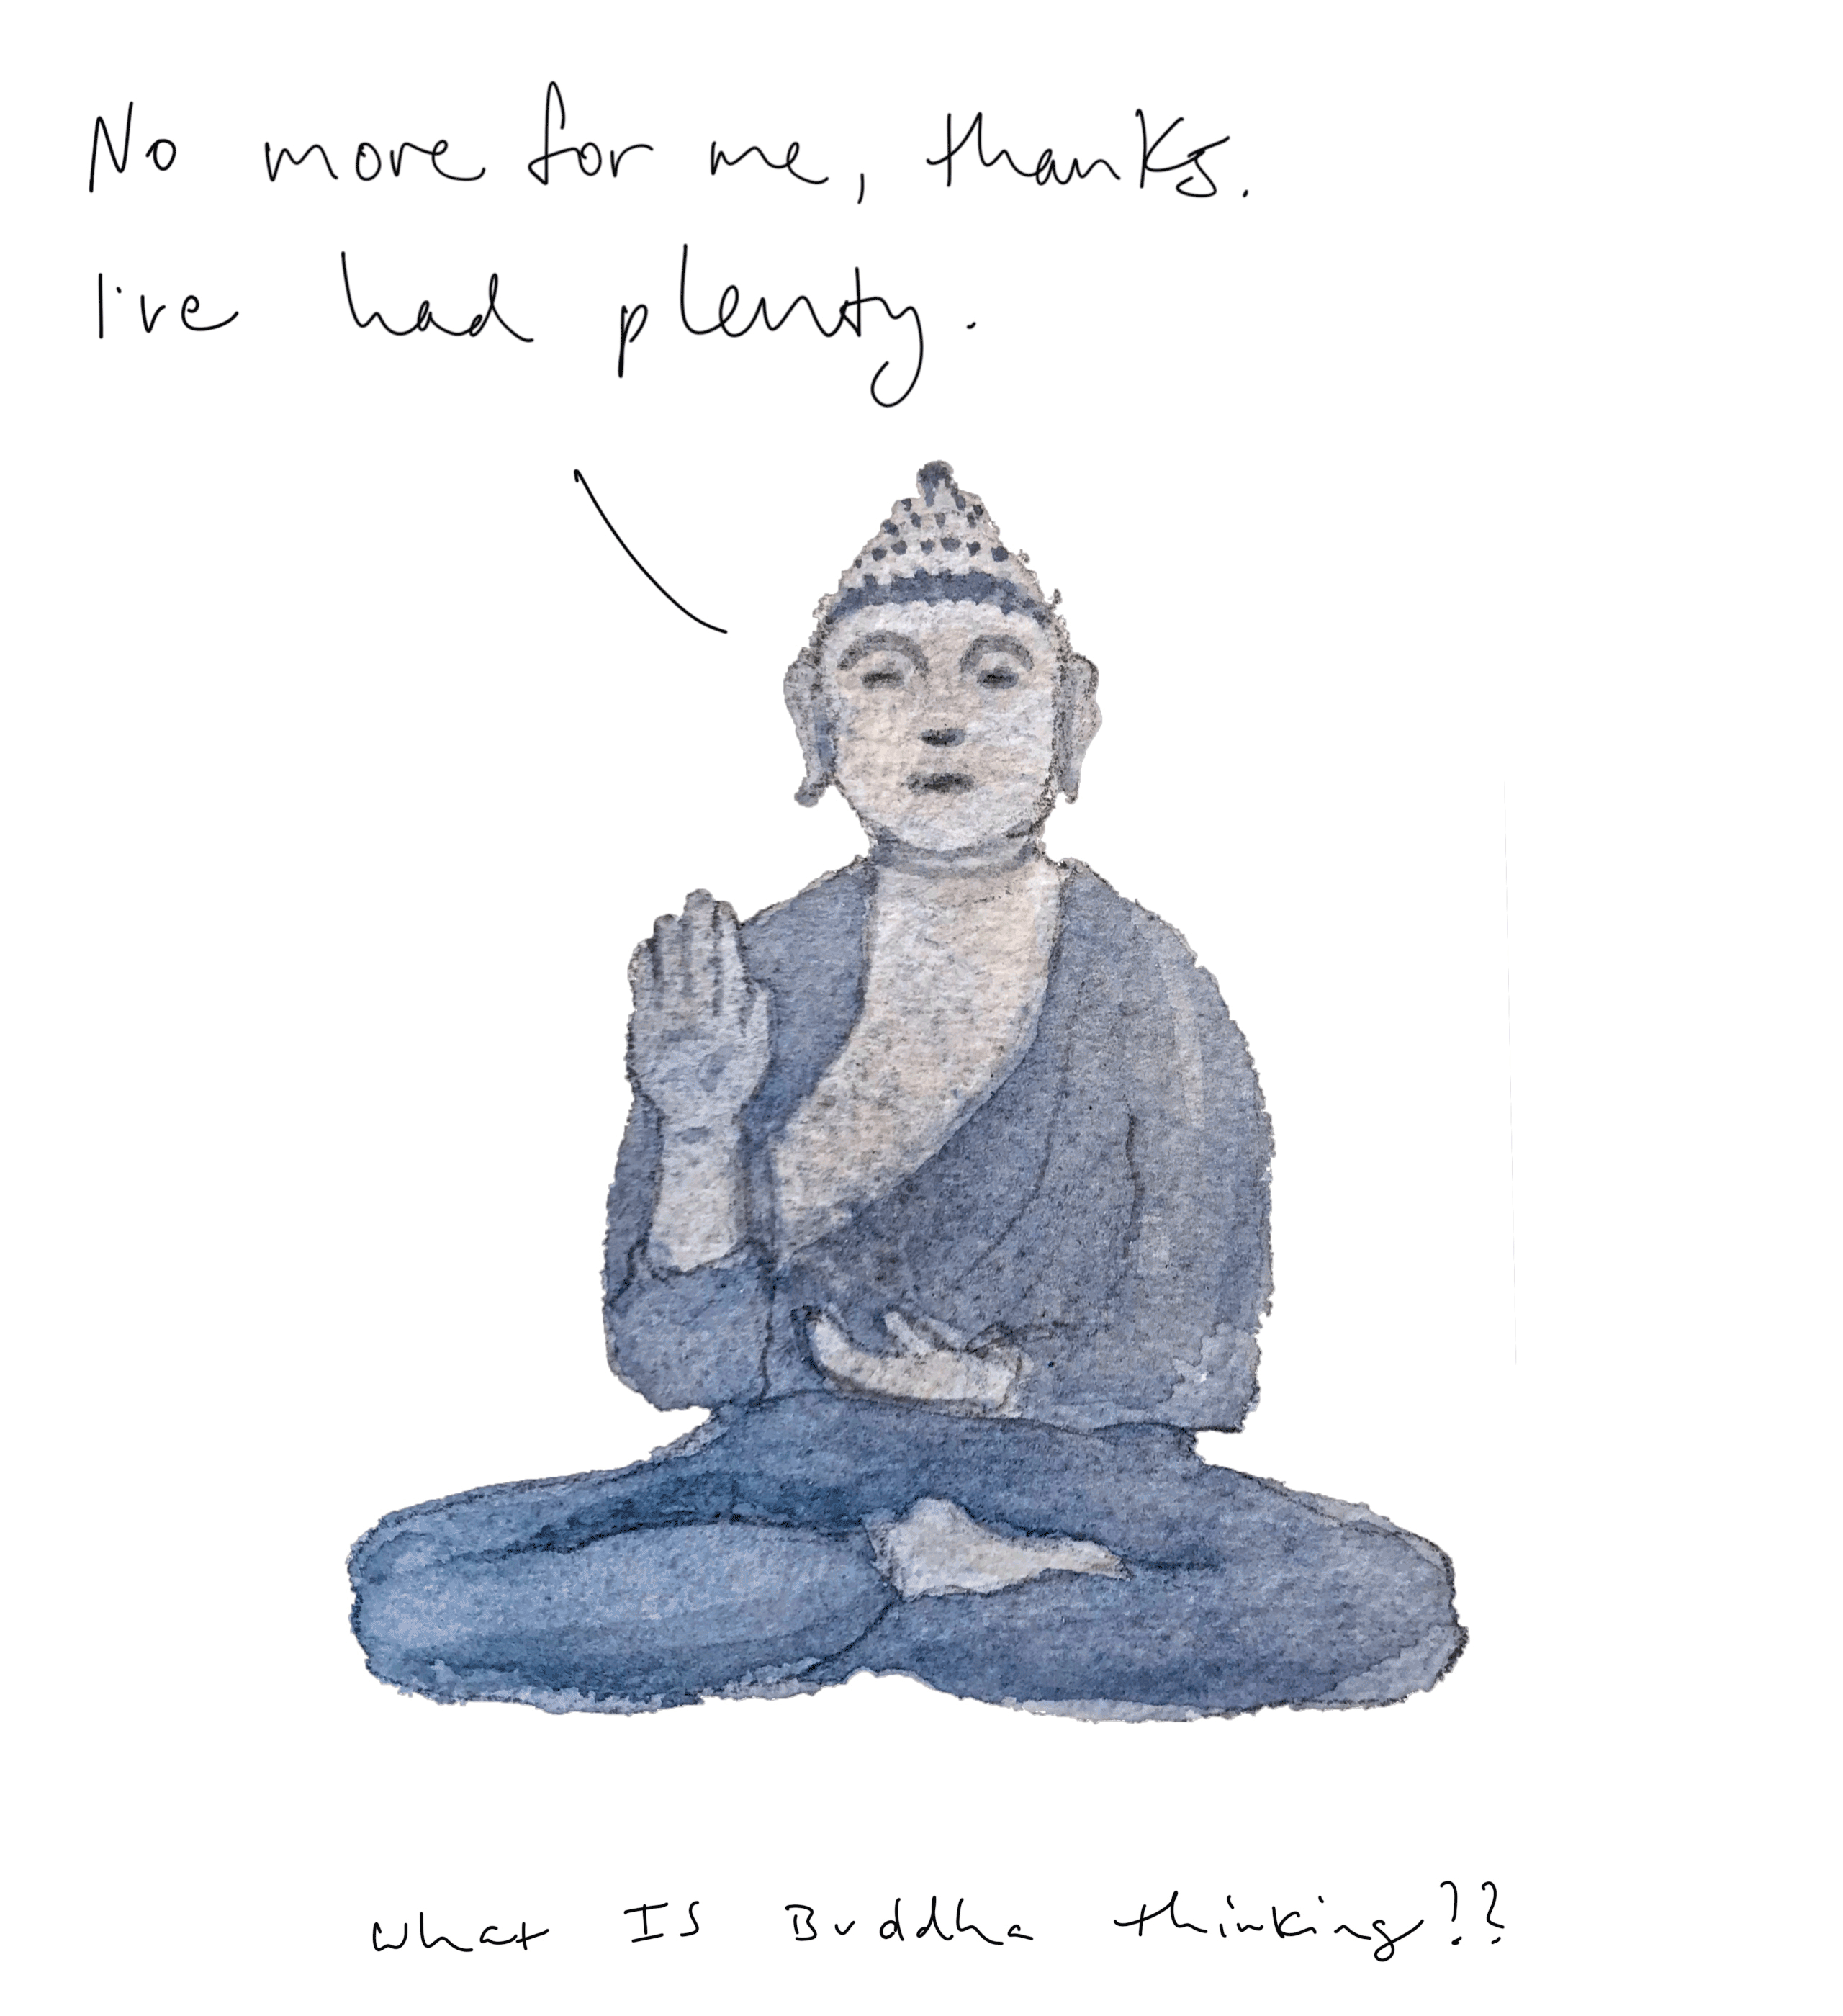 No more for me, thanks.
I've had plenty.
What IS Buddha thinking??